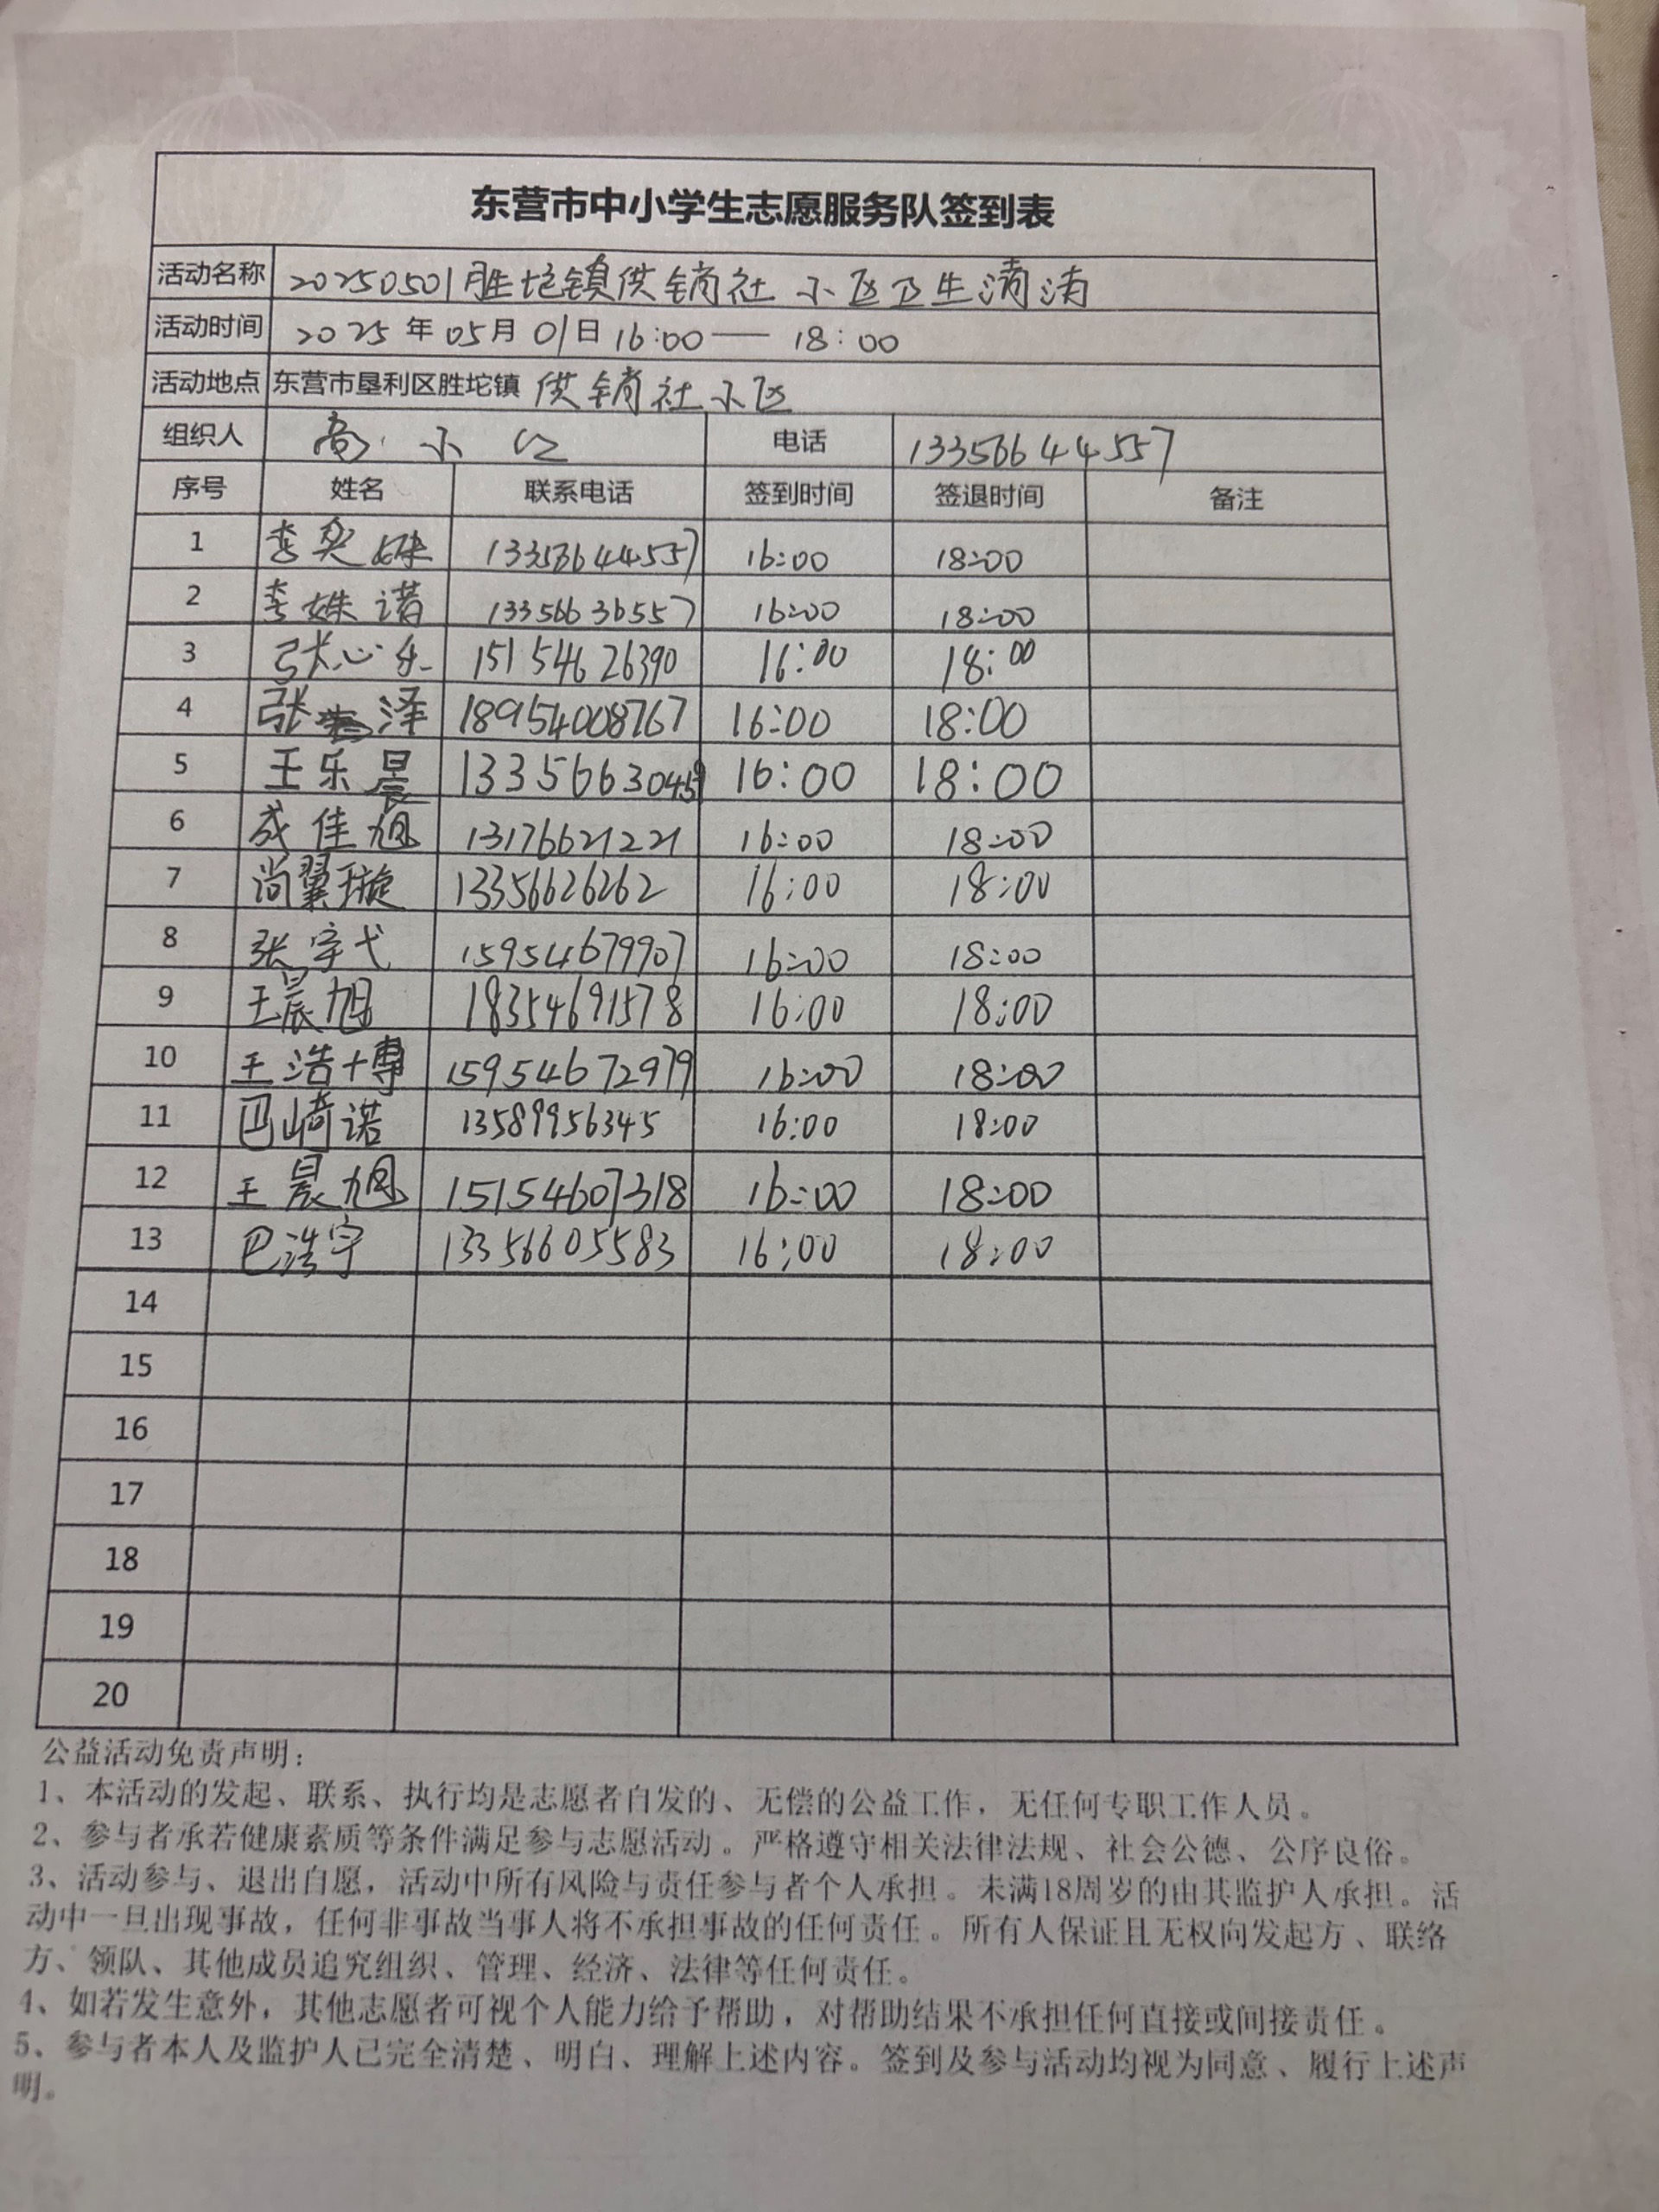 东营市中小学生志愿服务队签到表
活动名称 20250501胜坨镇供销社小区卫生清洁
活动时间 2025年05月01日16:00——18:00
活动地点 东营市垦利区胜坨镇 供销社小区
组织人 高小 电话 13356644557
序号 姓名 联系电话 签到时间 签退时间 备注
1 李奕 13356644557 16:00 18:00
2 李姝诺 13356636557 16:00 18:00
3 张心乐 15154626390 16:00 18:00
4 张 泽 18954008767 16:00 18:00
5 王乐晨 16:00 18:00
6 成佳旭 13176621221 16:00 18:00
7 尚翼璇 13356626262 16:00 18:00
8 张宇弋 15954679907 16:00 18:00
9 王晨旭 18354691578 16:00 18:00
10 王浩博 15954672979 16:00 18:00
11 巴崎诺 13589956345 16:00 18:00
12 王晨旭 15154607318 16:00 18:00
13 巴浩宇 13356605583 16:00 18:00
14
15
16
17
18
19
20
公益活动免责声明：
1、本活动的发起、联系、执行均是志愿者自发的、无偿的公益工作，无任何专职工作人员。
2、参与者承若健康素质等条件满足参与志愿活动。严格遵守相关法律法规、社会公德、公序良俗。
3、活动参与、退出自愿，活动中所有风险与责任参与者个人承担。未满18周岁的由其监护人承担。活
动中一旦出现事故，任何非事故当事人将不承担事故的任何责任。所有人保证且无权向发起方、联络
方、领队、其他成员追究组织、管理、经济、法律等任何责任。
4、如若发生意外，其他志愿者可视个人能力给予帮助，对帮助结果不承担任何直接或间接责任。
5、参与者本人及监护人已完全清楚、明白、理解上述内容。签到及参与活动均视为同意、履行上述声
明。